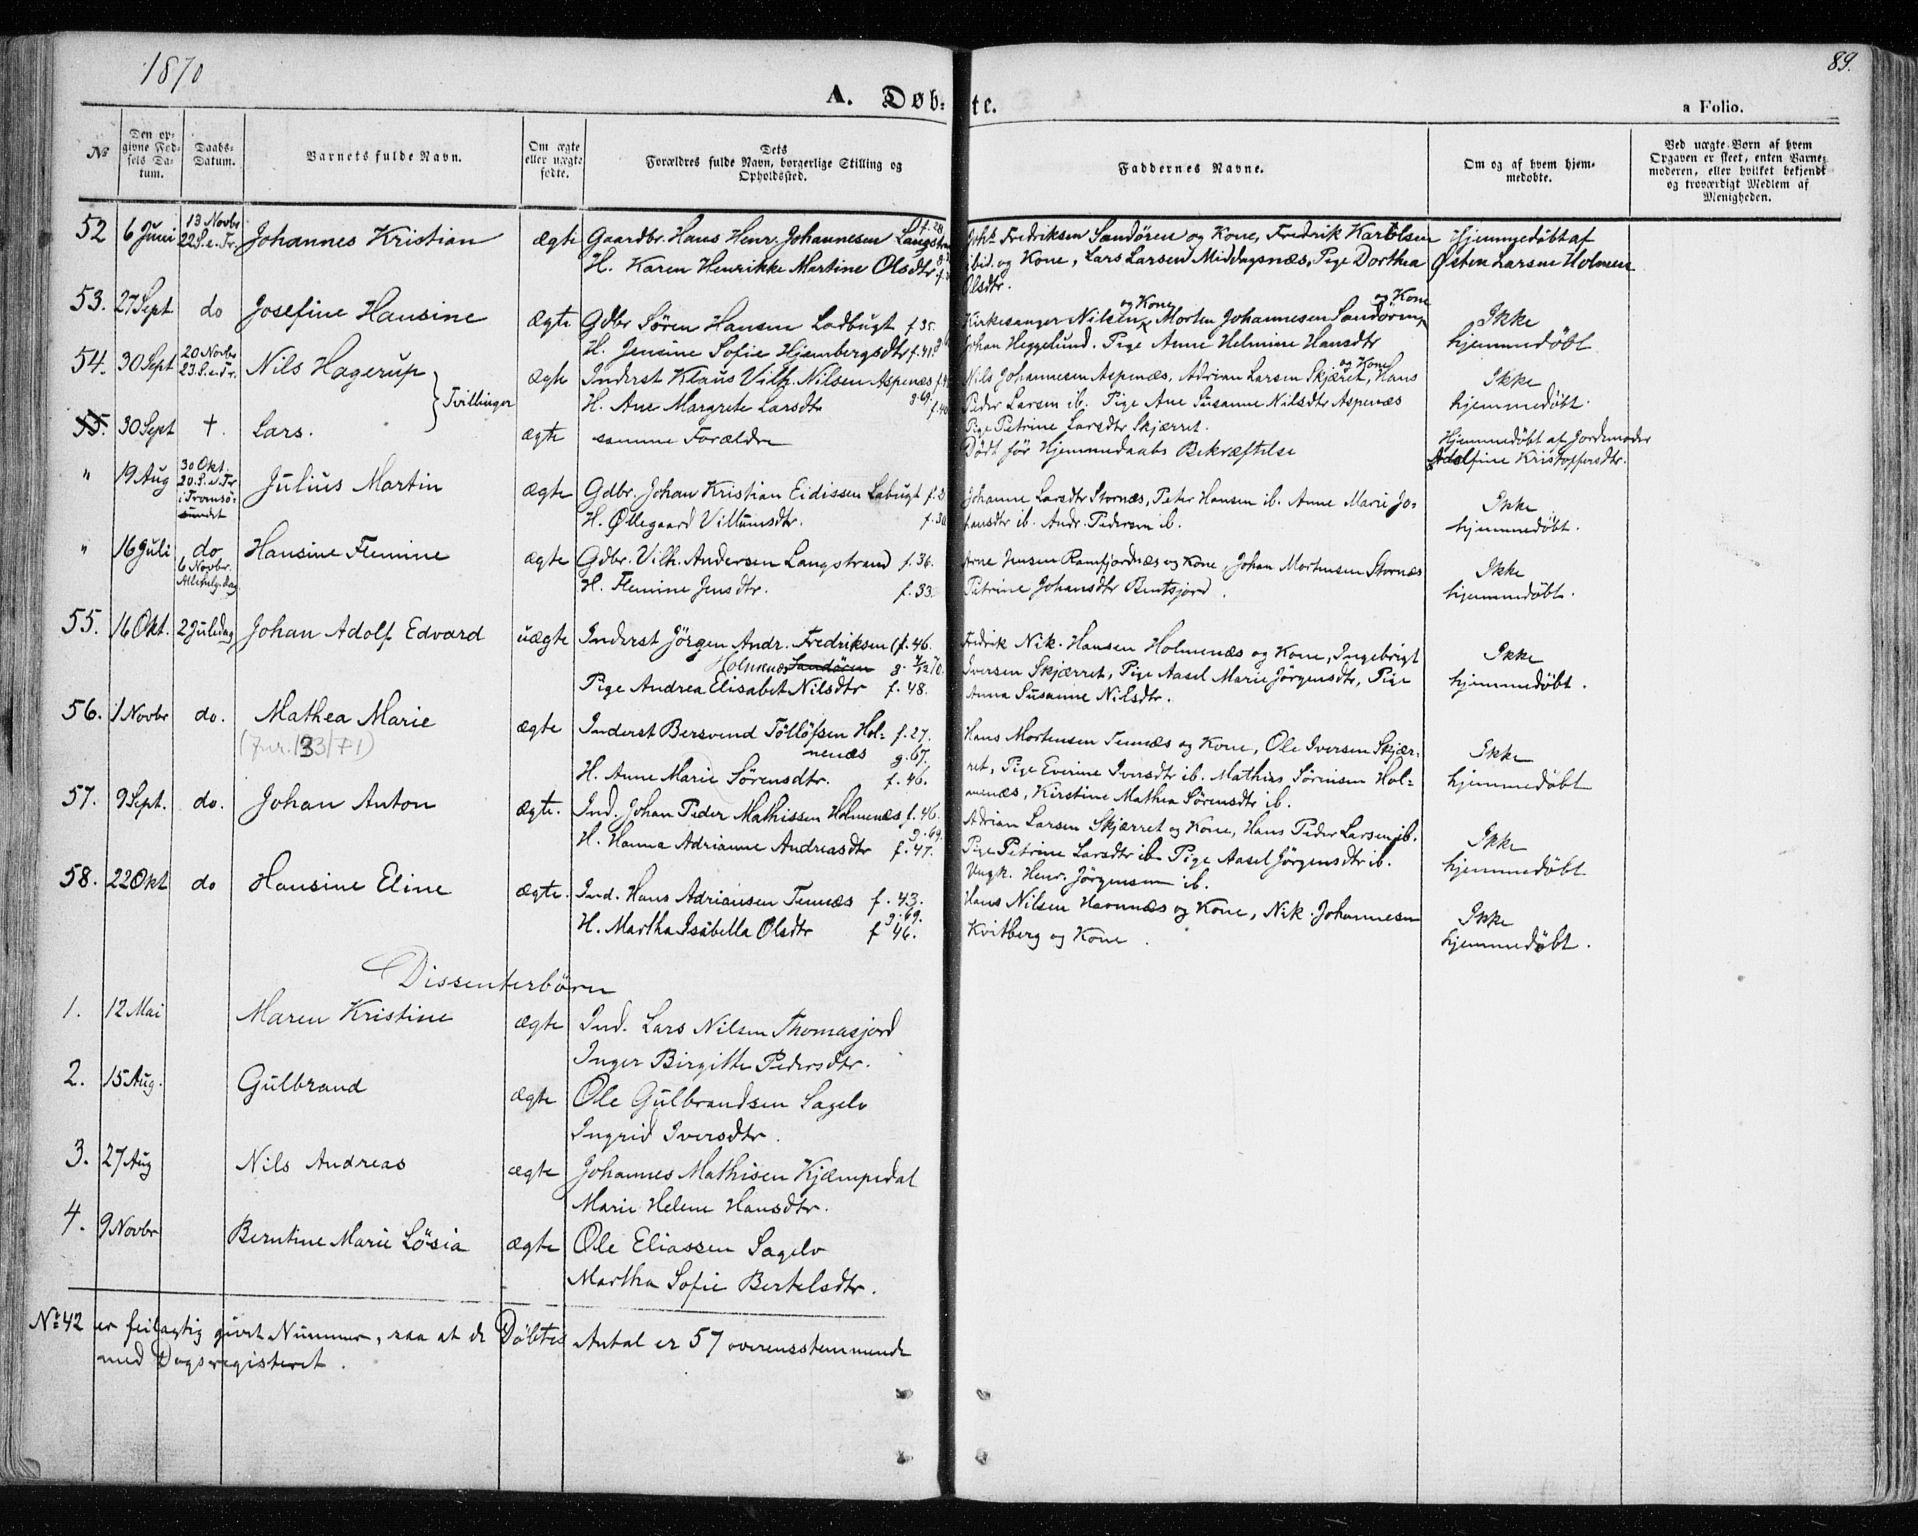 1870
89.
A. Døb-
te.
a Folio.
№
Den opgivne Fødsels Datum.
Daabs-Datum.
Barnets fulde Navn.
Om ægte eller uægte fødte.
Dets Forældres fulde Navn, borgerlige Stilling og Opholdssted.
Faddernes Navne.
Om og af hvem hjemmedøbte.
Ved uægte Børn af hvem Opgaven er skeet, enten Barnemoderen, eller hvilket bekjendt og troværdigt Medlem af Menigheden.
52 6 Juni 13 Novbr 22 S. e. Tr. Johannes Kristian ægte Gaardbr. Hans Henr. Johannesen Langstrand f. 28
H. Karen Henrikke Martine Olsdtr
Fredriksen Sandøren og Kone, Fredrik Karlolsen
ibid. og Kone, Lars Larsen Middagsnæs, Pige Dorthea
Olsdtr.
Hjemmedøbt af
Østen Larsen Holmen
53. 27 Sept do Josefine Hansine ægte Gdbr Søren Hansen Ladbugt f. 35.
H. Jensine Sofie Hjembergsdtr f. 41.
og Kone og Kone
Kirkesanger Nilsen, Morten Johannesen Sandøren,
Johan Heggelund. Pige Anne Helmine Hansdtr
Ikke
hjemmedøbt
54. 30 Sept 20 Novbr 23 S. e. Tr. Nils Hagerup ægte Inderst Klaus Vilh. Nilsen Aspenæs
H. Ane Margrete Larsdtr g. 69. f. 40
Tvillinger
og Kone
Nils Johannesen Aspenæs, Adrian Larsen Skjæret, Hans
Peder Larsen ib. Pige Ane Susanne Nilsdtr Aspenæs
Pige Petrine Larsdtr Skjærret.
Ikke
hjemmedøbt.
55. 30 Sept †. Lars. ægte samme Forældre
Dødt før Hjemmedaabs Bekræftelse
Hjemmedøbt af Jordemoder
Adolfine Kristoffersdtr.
" 19 Aug 30 Okt. 20. S. e. Tr i Tromsøsundet Julius Martin ægte Gdbr. Johan Kristian Eidissen Labugt
H. Øllegaard Villumsdtr. f. 30
Johanne Larsdtr Stornæs, Peter Hansen ib. Anne Marie Jo-
hansdtr ib. Andr. Pedersen ib.
Ikke
hjemmedøbt.
" 16 Juli do 6 Novbr. Allehelg. Dag Hansine Flemine ægte Gdbr. Vilh. Andersen Langstrand f. 36.
H. Flemine Jensdtr. f. 33.
Arne Jensen Ramfjordnæs og Kone, Johan Mortensen Stornæs
Petrine Johansdtr Bentsjord.
Ikke
hjemmedøbt.
55. 16 Okt. 2 Juledag Johan Adolf Edvard uægte Inderst Jörgen Andr. Fredriksen (f. 46.
Holmenæs Sandøren g. 4/12 70.
Pige Andrea Elisabet Nilsdtr f. 48.
Fredrik Nik. Hansen Holmenæs og Kone, Ingebrigt
Iversen Skjærret, Pige Aasel Marie Jörgensdtr, Pige
Anna Susanne Nilsdtr.
Ikke
hjemmedøbt.
56. 1 Novbr do. Mathea Marie ægte Inderst Bersvend Töllöfsen Hol- f. 27.
(Fnr. 133/71)
menæs g. 67.
H. Anne Marie Sørensdtr. f. 46.
Hans Mortensen Tennæs og Kone, Ole Iversen Skjær-
ret, Pige Everine Iversdtr ib. Mathias Sørensen Hol-
menæs, Kirstine Mathea Sørensdtr ib.
Ikke
hjemmedøbt
57. 9 Sept. do. Johan Anton ægte. Ind. Johan Peder Mathissen Holmenæs f. 46.
g. 69.
H. Hanna Adrianne Andreasdtr f. 47.
Adrian Larsen Skjærret og Kone, Hans Peder Larsen ib.
Pige Petrine Larsdtr ib. Pige Aasel Jörgensdtr ib.
Ungk. Henr. Jörgensen ib.
Ikke
hjemmedøbt
58. 22 Okt do Hansine Eline ægte. Ind. Hans Adriansen Tennæs f. 43.
g. 69.
H. Martha Isabella Olsdtr f 46.
Hans Nilsen Havnnæs og Kone, Nik. Johannesen
Kvitberg og Kone.
Ikke
hjemmedøbt.
Dissenterbörn
1. 12 Mai Maren Kristine ægte Ind. Lars Nilsen Thomasjord
Inger Birgitte Pedersdtr.
2. 15 Aug. Gulbrand ægte Ole Gulbrandsen Sagelv
Ingrid Iversdtr.
3. 27 Aug Nils Andreas ægte Johannes Mathisen Kjæmpedal
Marie Helene Hansdtr.
4. 9 Novbr Berntine Marie Lösia ægte Ole Eliassen Sagelv
Martha Sofie Bertelsdtr.
No 42 er feilagtig givet Nummer, saa at de Döbtes Antal er 57 overensstemmende
med Dagsregisteret.